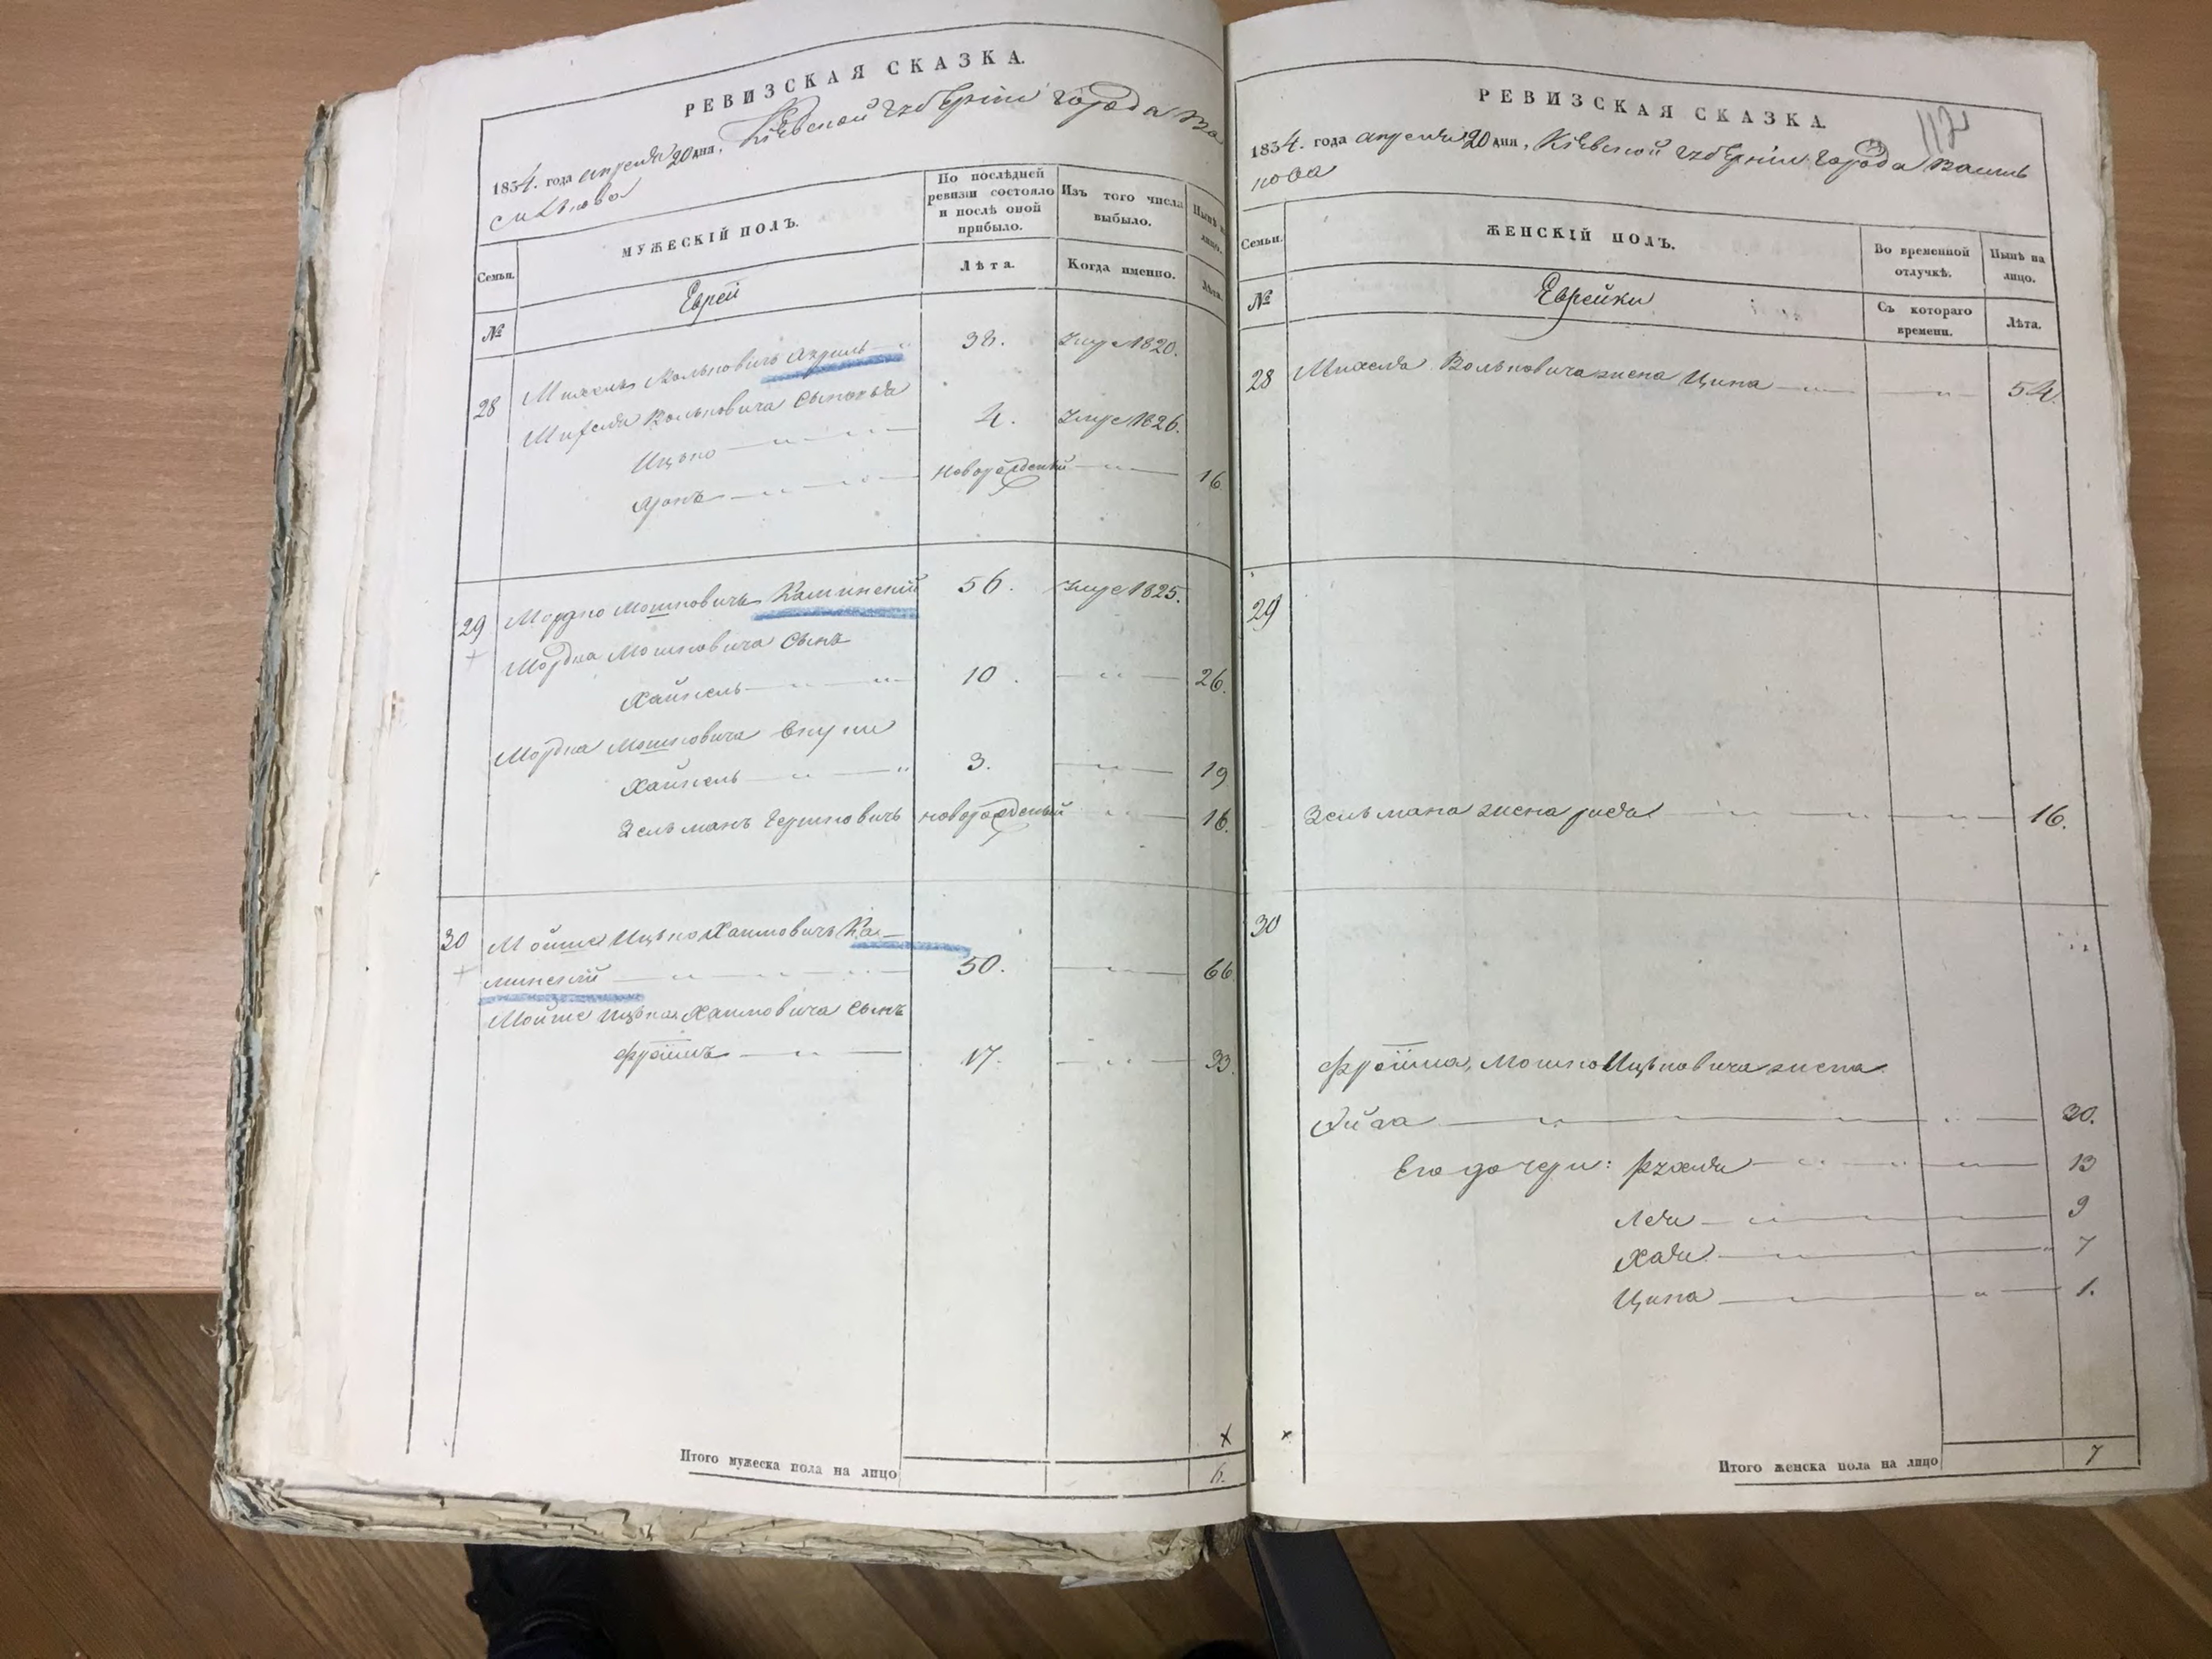 РЕВИЗСКАЯ СКАЗКА.
1834. года апреля 20 дня, Кіевской губерніи города Ва
силькова
Семьи.
МУЖЕСКІЙ ПОЛЪ.
По послѣдней ревизіи состояло и послѣ оной прибыло.
Изъ того числа выбыло.
Нынѣ на лицо.
№
Еврей
Лѣта.
Когда именно.
Лѣта.
28 Михель Вольковичъ 38. Умре 1820.
Михеля Вольковича сыновья
Ицько 4. Умре 1826.
Аронъ новорожденный 16
29 Мордко Мошковичъ Каминскій 56. Умре 1825.
Мордка Мошковича сынъ
Хайкель 10. 26.
Мордка Мошковича внуки
Хайкель 3. 19
Зельманъ Берковичъ новорожденный 16.
30 Мойше Ицько Хаимовичъ Ка-
минскій 50. 66
Мойше Ицька Хаимовича сынъ
Фроимъ 17. 33.
Итого мужеска пола на лицо 6.
РЕВИЗСКАЯ СКАЗКА.
1834. года апреля 20 дня, Кіевской губерніи города Василь
кова
Семьи.
ЖЕНСКІЙ ПОЛЪ.
Во временной отлучкѣ.
Нынѣ на лицо.
№
Еврейки
Съ котораго времени.
Лѣта.
28 Михеля Вольковича жена Ципа 54.
29
Зельмана жена 16.
30
Фроима, Мошко Ицьковича жена
30.
Его дочери: Рухля 13
Лея 9
Хая 7
Ципа 1.
Итого женска пола на лицо 7